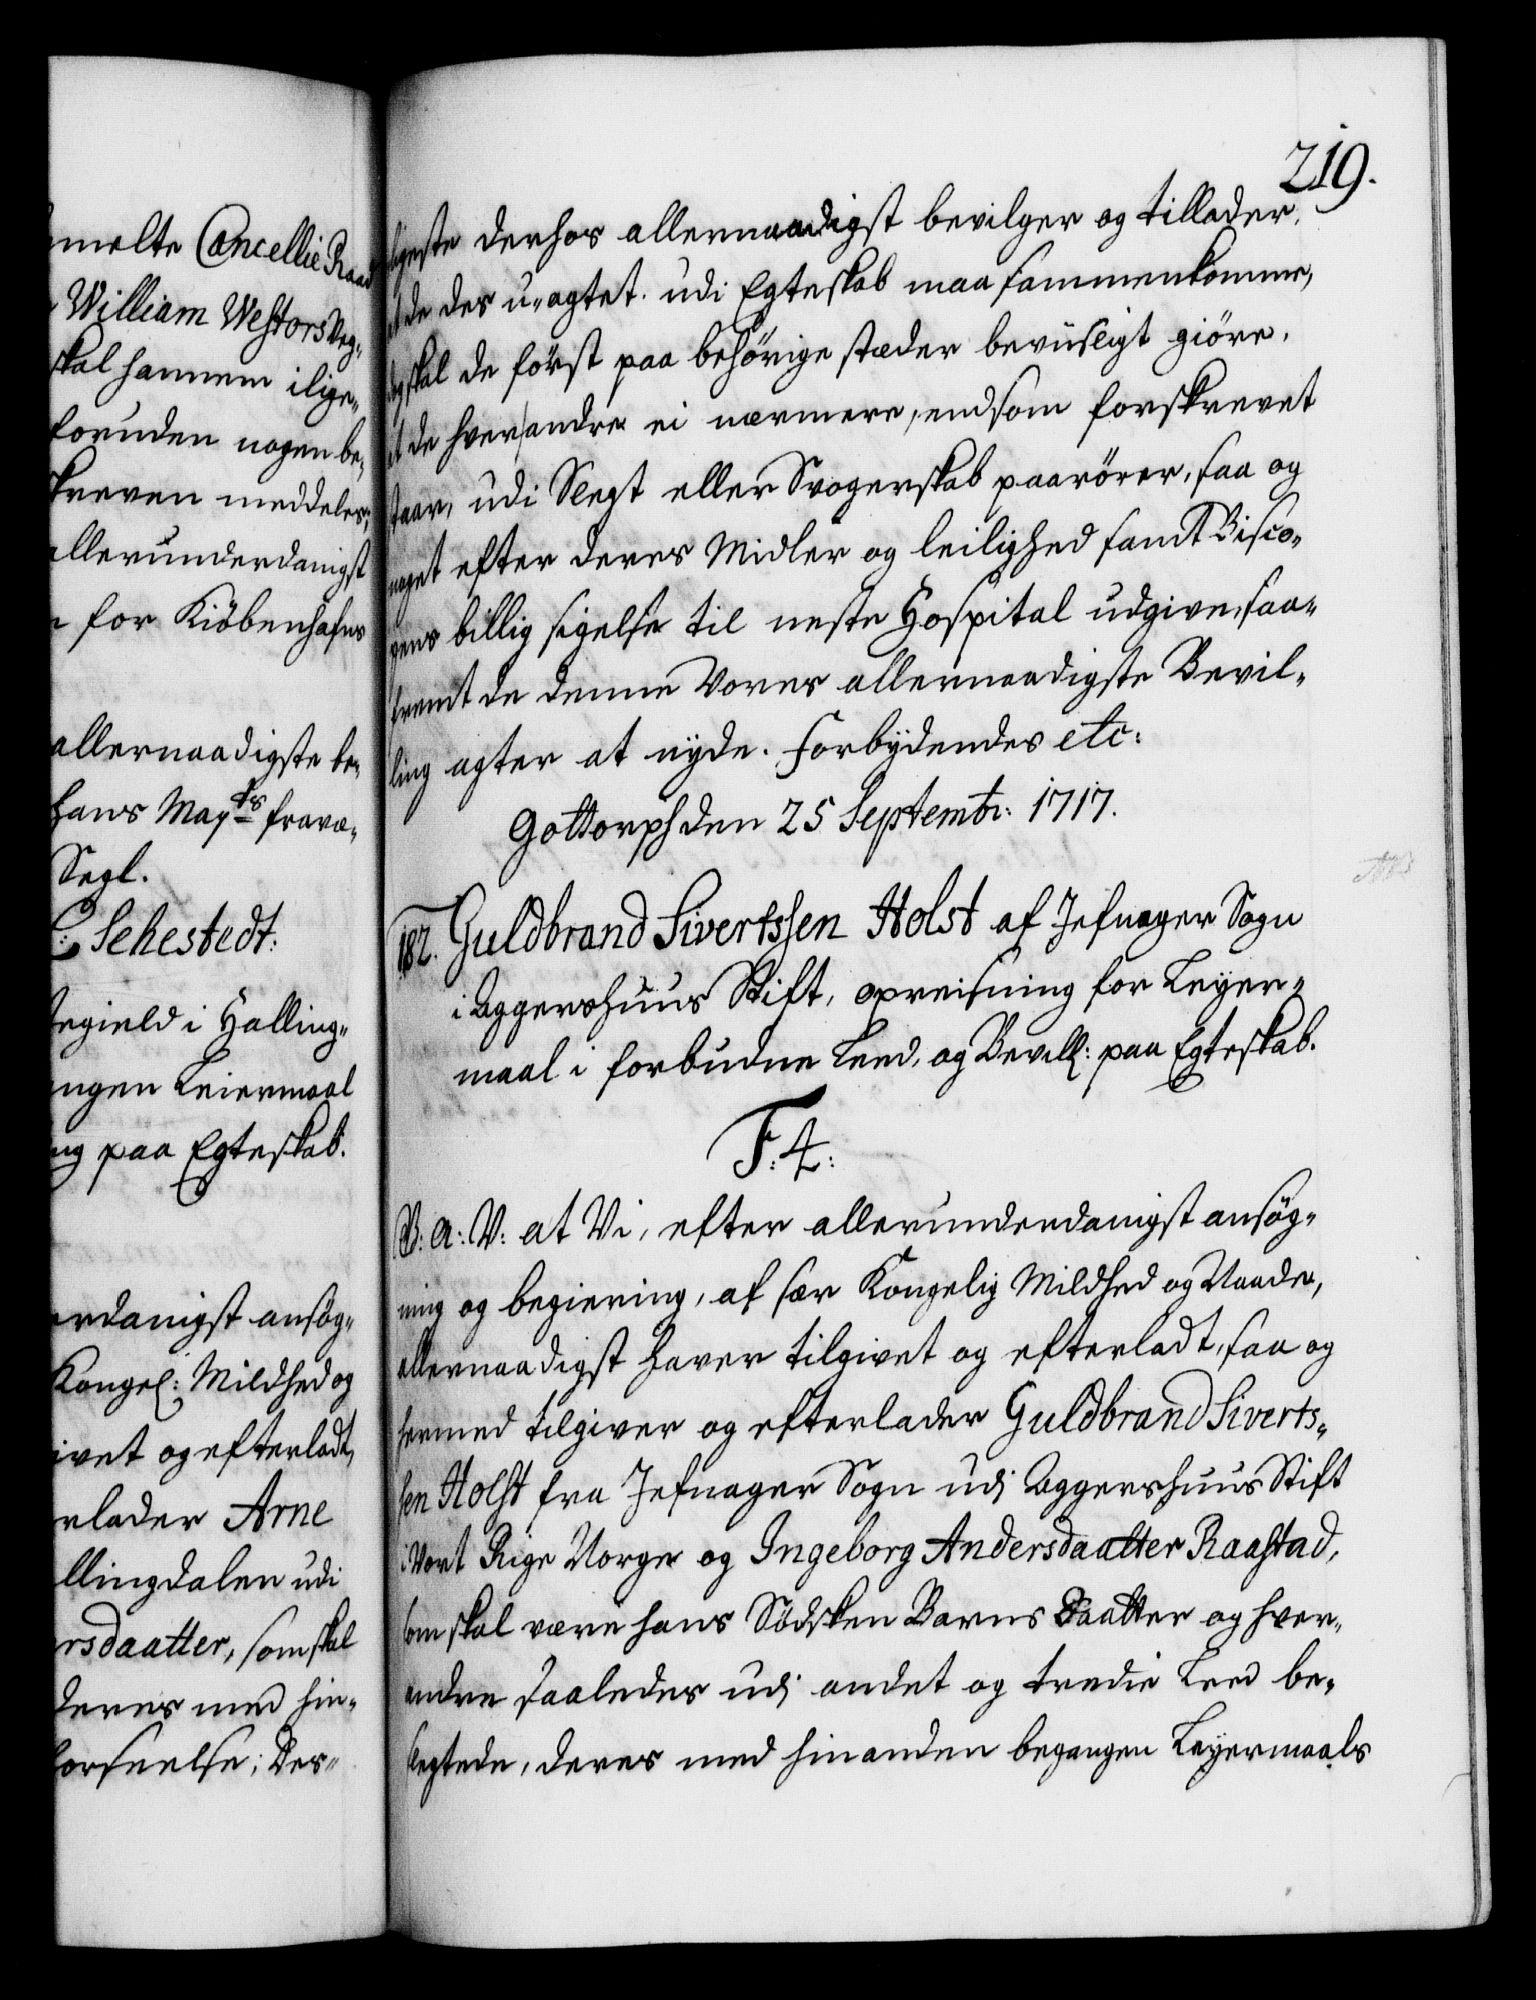 melte Cancellie Raad
William Westors Veg-
skal hannem ilige-
foruden nogen be-
skreven meddeles,
allerunderdanigst
for Kiöbenhafns
allernaadigste be-
Hans Mayts fravæ-
Segl.
C: Sehestedt:
egield i Halling-
ngen Leiermaal
ng paa Egteskab.
erdanigst ansög-
Kongel: Mildhed og
ivet og efterladt,
rlader Arne
llingdalen udi
rsdaatter, som skal
deres med hin-
forseelse; Des-
219.
ligeste derhos allernaadigst bevilger og tillader,
at de des u-agtet udi Egteskab maa sammenkomme,
dog skal de först paa behörige stæder beviisligt giöre,
at de hverandre ei nærmere, end som forskrevet
staar, udi Slegt eller Svogerskab paarörer, saa og
noget efter deres Midler og leilighed samt Bisco-
pens billig sigelse til neste Hospital udgive, saa-
fremt de denne Vores allernaadigste Bevil-
ling agter at nyde. Forbydendes etc:
Gottorph den 25 Septembr: 1717.
182. Guldbrand Sivertssen Holst af Jefnager Sogn
i Aggershuus Stift, opreisning for Leyer-
maal i forbudne Leed, og Bevill: paa Egteskab.
F: 4:
V: A: V: at Vi, efter allerunderdanigst ansög-
ning og begiering, af sær Kongelig Mildhed og Naade,
allernaadigst haver tilgivet og efterladt, saa og
hermed tilgiver og efterlader Guldbrand Siverts-
sen Holst fra Jefnager Sogn udj Aggershuus Stift
i Vort Rige Norge og Ingeborg Andersdaatter Raastad,
som skal være hans Södsken Barns Daatter og hver-
andre saaledes udj andet og tredie Leed be-
slegtede, deres med hinanden begangen Leyermaals